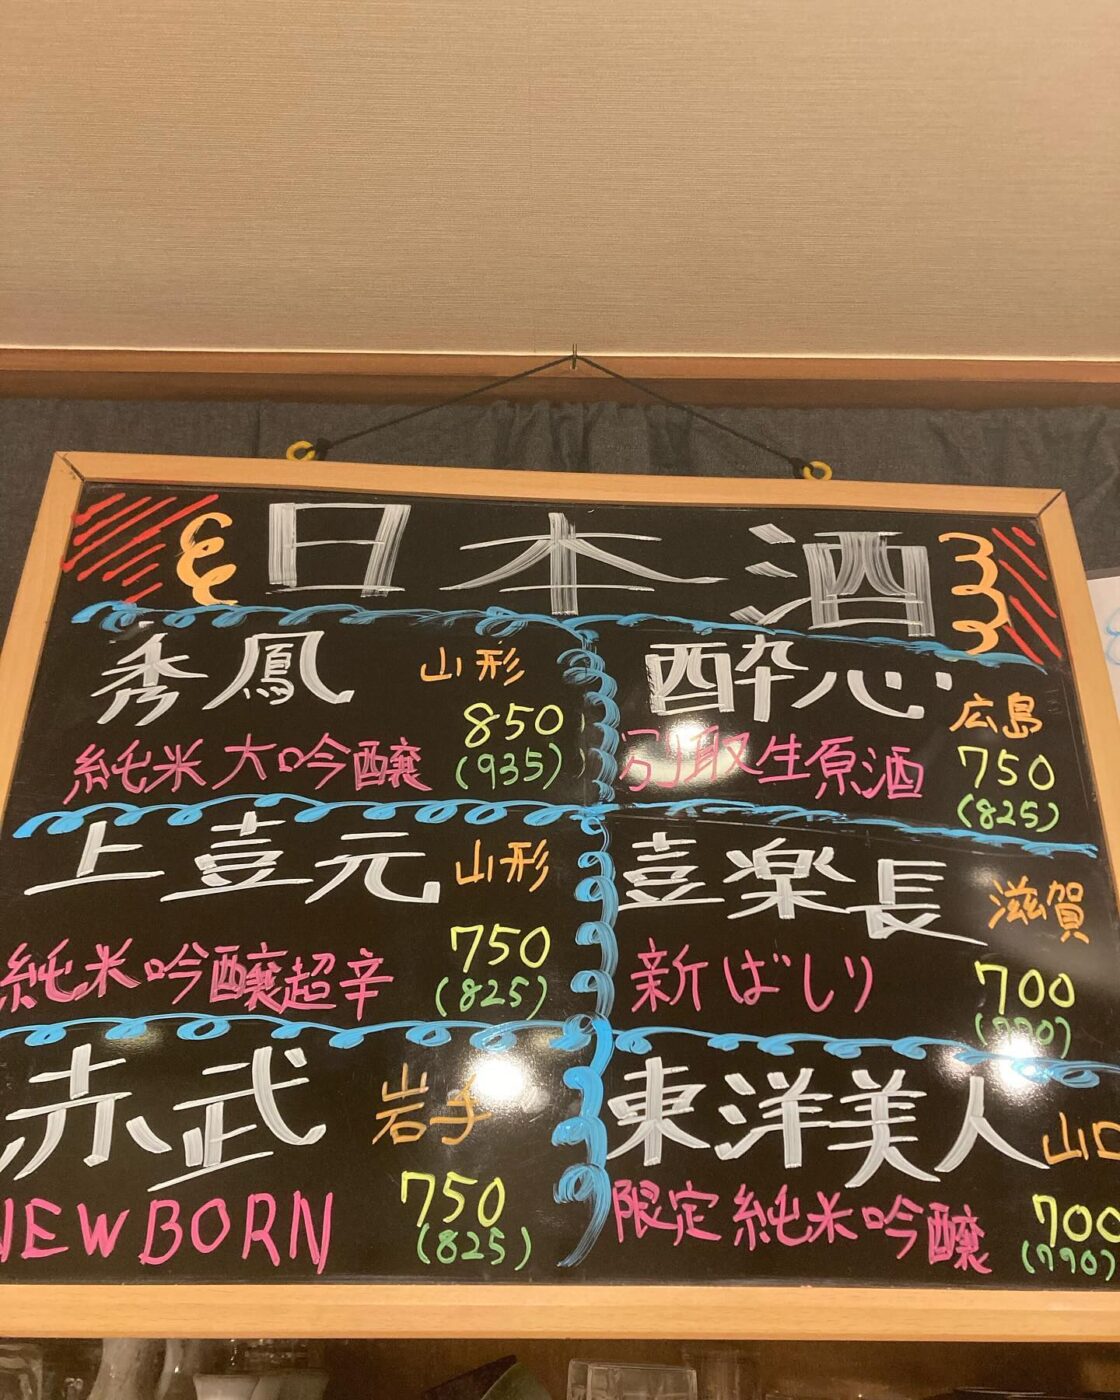 日本酒
秀鳳 山形
純米大吟醸 850
(935)
酔心 広島
引取生原酒 750
(825)
上喜元 山形
純米吟醸超辛 750
(825)
喜楽長 滋賀
新ばしり 700
(770)
赤武 岩手
NEWBORN 750
(825)
東洋美人 山口
限定純米吟醸 700
(770)